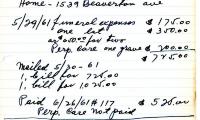 Home - 1539 Beaverton ave
5/29/61 funeral expenses $175.00
one lot $350.00
or $650.00 for two
Perp. Care one grave $200.00
$725.00
Mailed 5/30-61
1, bill for 725.00
1, bill for 1025.00
Paid 6/26/61 #117 $525.00
Perp Care Not paid